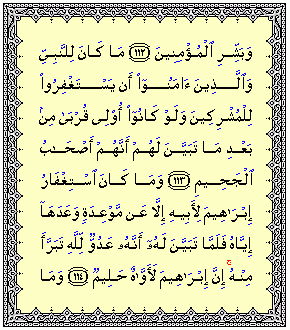 وَبَشِّرِ ٱلْمُؤْمِنِينَ ١١٢ مَا كَانَ لِلنَّبِىِّ
وَٱلَّذِينَ ءَامَنُوٓا۟ أَن يَسْتَغْفِرُوا۟
لِلْمُشْرِكِينَ وَلَوْ كَانُوٓا۟ أُو۟لِى قُرْبَىٰ مِنۢ
بَعْدِ مَا تَبَيَّنَ لَهُمْ أَنَّهُمْ أَصْحَـٰبُ
ٱلْجَحِيمِ ١١٣ وَمَا كَانَ ٱسْتِغْفَارُ
إِبْرَٰهِيمَ لِأَبِيهِ إِلَّا عَن مَّوْعِدَةٍ وَعَدَهَآ
إِيَّاهُ فَلَمَّا تَبَيَّنَ لَهُۥٓ أَنَّهُۥ عَدُوٌّ لِّلَّهِ تَبَرَّأَ
مِنْهُ ۚ إِنَّ إِبْرَٰهِيمَ لَأَوَّٰهٌ حَلِيمٌ ١١٤ وَمَا